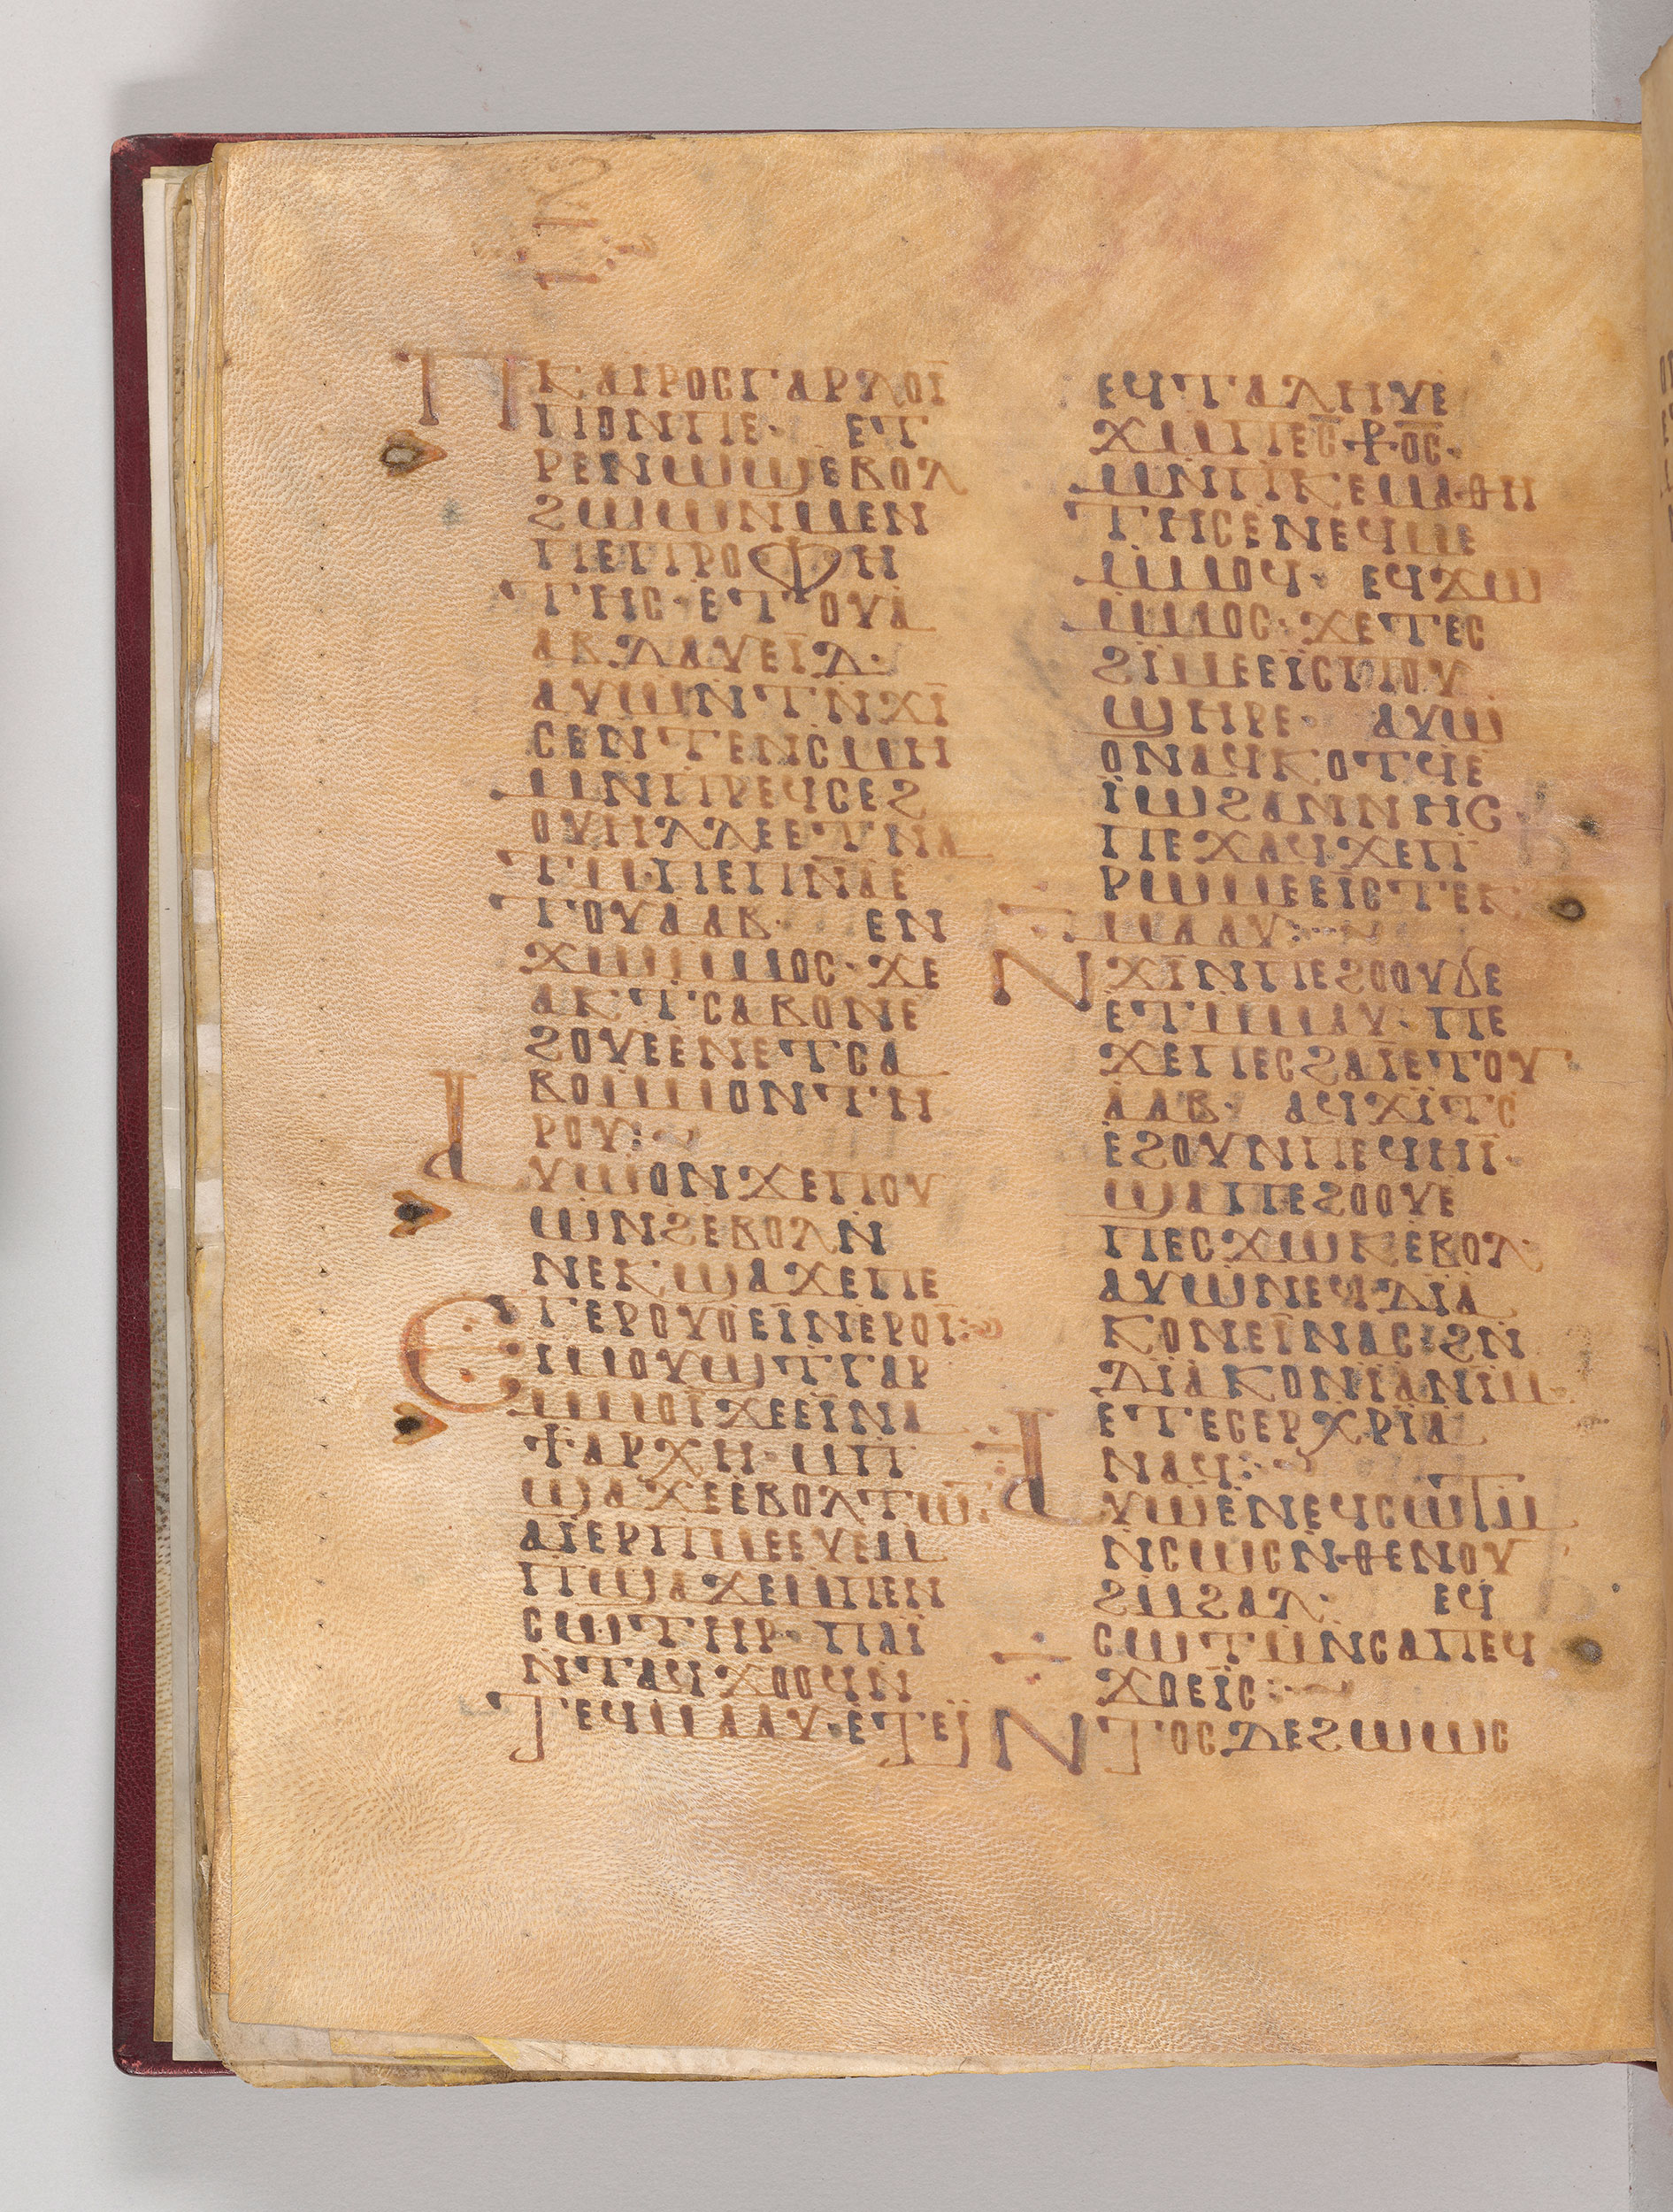 ⲠⲔⲀⲒⲢⲞⲤⲄⲀⲢⲖⲞⲒ̈
ⲠⲞⲚⲠⲈ· ⲈⲦ
ⲢⲈⲚⲰϢⲈⲂⲞⲖ
ϨⲰⲰⲚⲘⲈⲚ
ⲠⲈⲠⲢⲞⲪⲎ
ⲦⲎⲤ·ⲈⲦⲞⲨⲀ
ⲀⲂⲆⲀⲨⲈⲒⲆ·
ⲀⲨⲰⲚⲦⲚϪⲒ
ⲤⲈⲚⲦⲈⲚⲤⲘⲎ
ⲘⲚⲠⲢⲈϤⲤⲈϨ
ⲞⲨⲎⲖⲖⲈⲈⲦⲚⲀ
ⲦⲘ·ⲠⲈⲠⲚ̅Ⲁ̅Ⲉ
ⲦⲞⲨⲀⲀⲂ· ⲈⲚ
ϪⲰⲘⲘⲞⲤ·ϪⲈ
ⲀⲔⲦⲤⲀⲂⲞⲚⲈ
ϨⲞⲨⲈⲈⲚⲈⲦⲤⲀ
ⲂⲞⲘⲘⲞⲚⲦⲎ
ⲢⲞⲨ:~
ⲀⲨⲰⲞⲚϪⲈⲠⲞⲨ
ⲰⲚϨⲈⲂⲞⲖⲚ
ⲚⲈⲔϢⲀϪⲈⲠⲈ
ⲦⲈⲢⲞⲨⲞⲈⲒⲚⲈⲢⲞⲒ̈:~
ⲈⲠⲞⲨⲰϢⲦⲄⲀⲢ
ⲘⲘⲞⲒ̈ϪⲈⲈⲒ̈ⲚⲀ
ϮⲀⲢⲬⲎ·ⲘⲠ
ϢⲀϪⲈⲈⲂⲞⲖⲦⲰ̅
ⲀⲒ̈ⲈⲢⲠⲘⲈⲈⲨⲈⲘ
ⲠϢⲀϪⲈⲘⲠⲈⲚ
ⲤⲰⲦⲎⲢ·ⲠⲀⲒ̈
ⲚⲦⲀϤϪⲞⲞϤⲚ
ⲦⲈϤⲘⲀⲀⲨ·ⲈⲦⲈⲒ̈
ⲈϤⲦⲀⲖⲎⲨⲈ
ϪⲘⲠⲈⲤ̅⳨Ⲟ̅Ⲥ̅·
ⲘⲚⲠⲔⲈⲘⲀⲐⲎ
ⲦⲎⲤⲈⲚⲈϤⲘⲈ
ⲘⲘⲞϤ· ⲈϤϪⲰ
ⲘⲘⲞⲤ·ϪⲈⲦⲈⲤ
ϨⲒⲘⲈⲈⲒ̈ⲤⲠⲞⲨ
ϢⲎⲢⲈ· ⲀⲨⲰ
ⲞⲚⲀϤⲔⲞⲦϤⲈ
Ⲓ̈ⲰϨⲀⲚⲚⲎⲤ·
ⲠⲈϪⲀϤϪⲈⲠ
ⲢⲰⲘⲈⲈⲒ̈ⲤⲦⲈⲔ
ⲘⲀⲀⲨ:~
ⲚϪⲒⲚⲠⲈϨⲞⲞⲨⲆⲈ
ⲈⲦⲘⲘⲀⲨ·ⲠⲈ
ϪⲈⲠⲈⲤϨⲀⲒ̈ⲈⲦⲞⲨ
ⲀⲀⲂ· ⲀϤϪⲒ̈ⲦⲤ
ⲈϨⲞⲨⲚⲠⲈϤⲎⲒ̈·
ϢⲀⲠⲈϨⲞⲞⲨⲈ
ⲠⲈⲤϪⲰⲔⲈⲂⲞⲖ·
ⲀⲨⲰⲚⲈϤⲆⲒ̈Ⲁ
ⲔⲞⲚⲈⲒ̈ⲚⲀⲤ:ϨⲚ
ⲆⲒ̈ⲀⲔⲞⲚⲒ̈ⲀⲚⲒⲘ·
ⲈⲦⲈⲤⲈⲢⲬⲢⲒ̈Ⲁ
ⲚⲀϤ:~
ⲀⲨⲰⲈⲚⲈϤⲤⲰⲦⲘ
ⲚⲤⲰⲤⲚⲐⲈⲚⲞⲨ
ϨⲘϨⲀⲖ: ⲈϤ
ⲤⲰⲦⲘⲚⲤⲀⲠⲈϤ
ϪⲞⲈⲒ̈Ⲥ:~
ⲚⲦⲞⲤⲆⲈϨⲰⲰⲤ